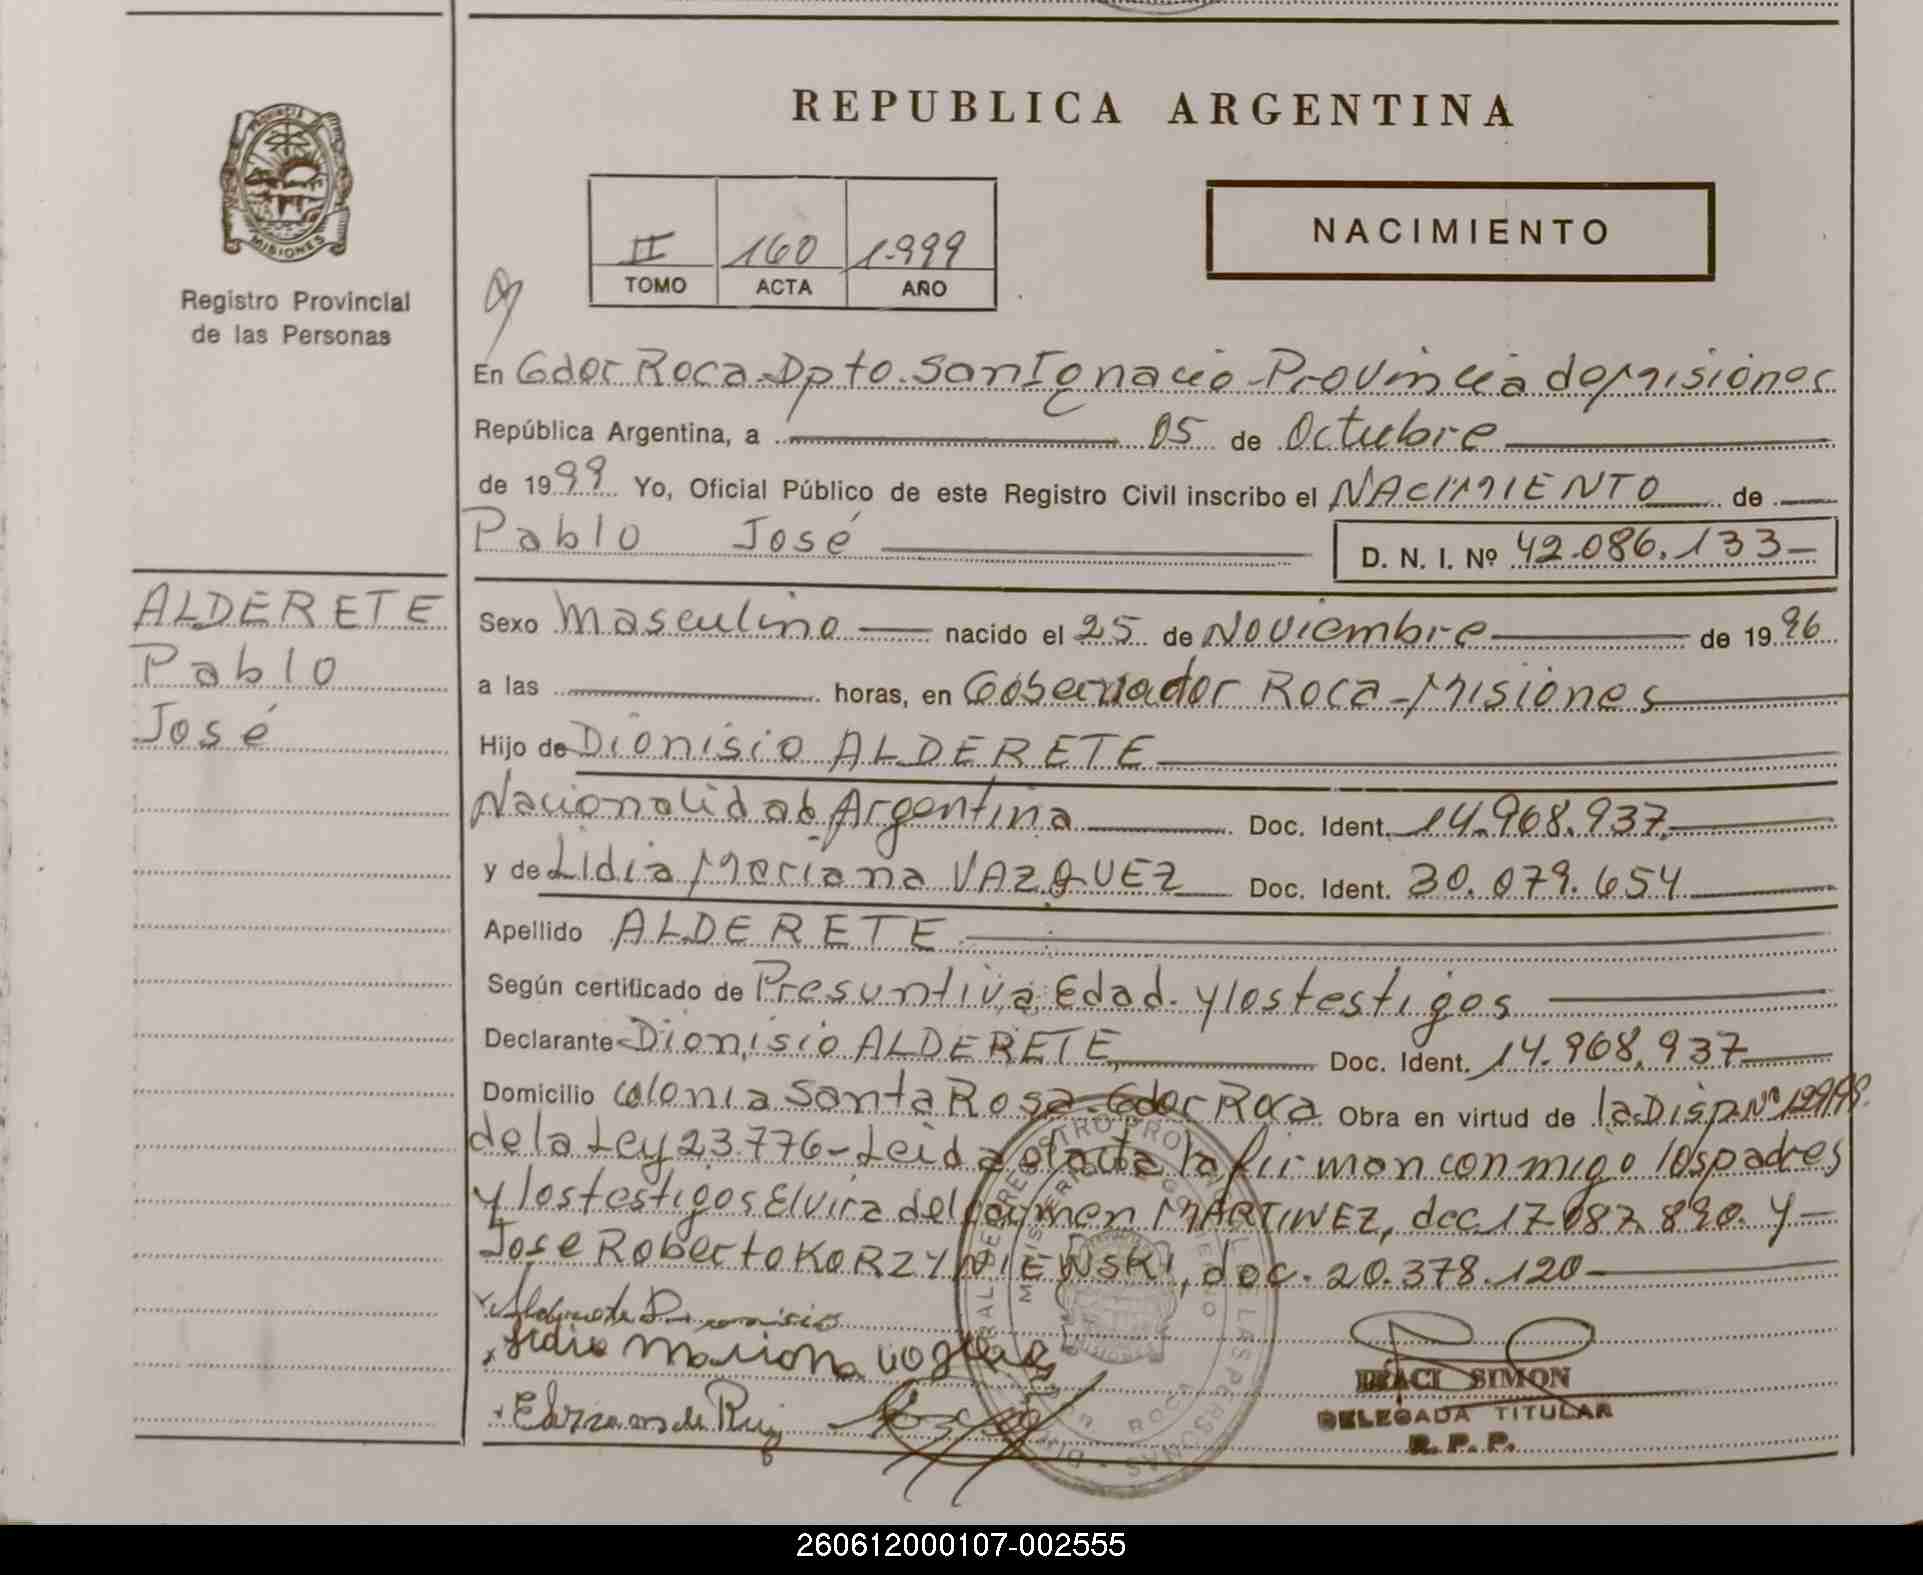 REPUBLICA ARGENTINA
PROVINCIA
MISIONES
Registro Provincial
de las Personas
II 160 1.999
TOMO ACTA AÑO
NACIMIENTO
En Gdor Roca-Dpto. San Ignacio-Provincia de Misiones
República Argentina, a 05 de Octubre
de 1999 Yo, Oficial Público de este Registro Civil inscribo el NACIMIENTO de
Pablo José D. N. I. Nº 42.086.133
ALDERETE
Pablo
José
Sexo Masculino nacido el 25 de Noviembre de 1996
a las horas, en Gobernador Roca-Misiones
Hijo de Dionisio ALDERETE
Nacionalidad Argentina Doc. Ident. 14.968.937
y de Lidia Mariana VAZQUEZ Doc. Ident. 30.079.654
Apellido ALDERETE
Según certificado de Presuntiva Edad. y los testigos
Declarante Dionisio ALDERETE Doc. Ident. 14.968.937
Domicilio Colonia Santa Rosa-Gdor Roca Obra en virtud de la Disp. Nº
de la Ley 23.776-Leida el acta la firman conmigo los padres
y los testigos Elvira del Carmen MARTINEZ, doc. 17.087.890. y
Jose Roberto KORZYNIEWSKI, doc. 20.378.120
Alderete Dionisio
Lidia Mariana
IRACI SIMON
DELEGADA TITULAR
R. P. P.
260612000107-002555